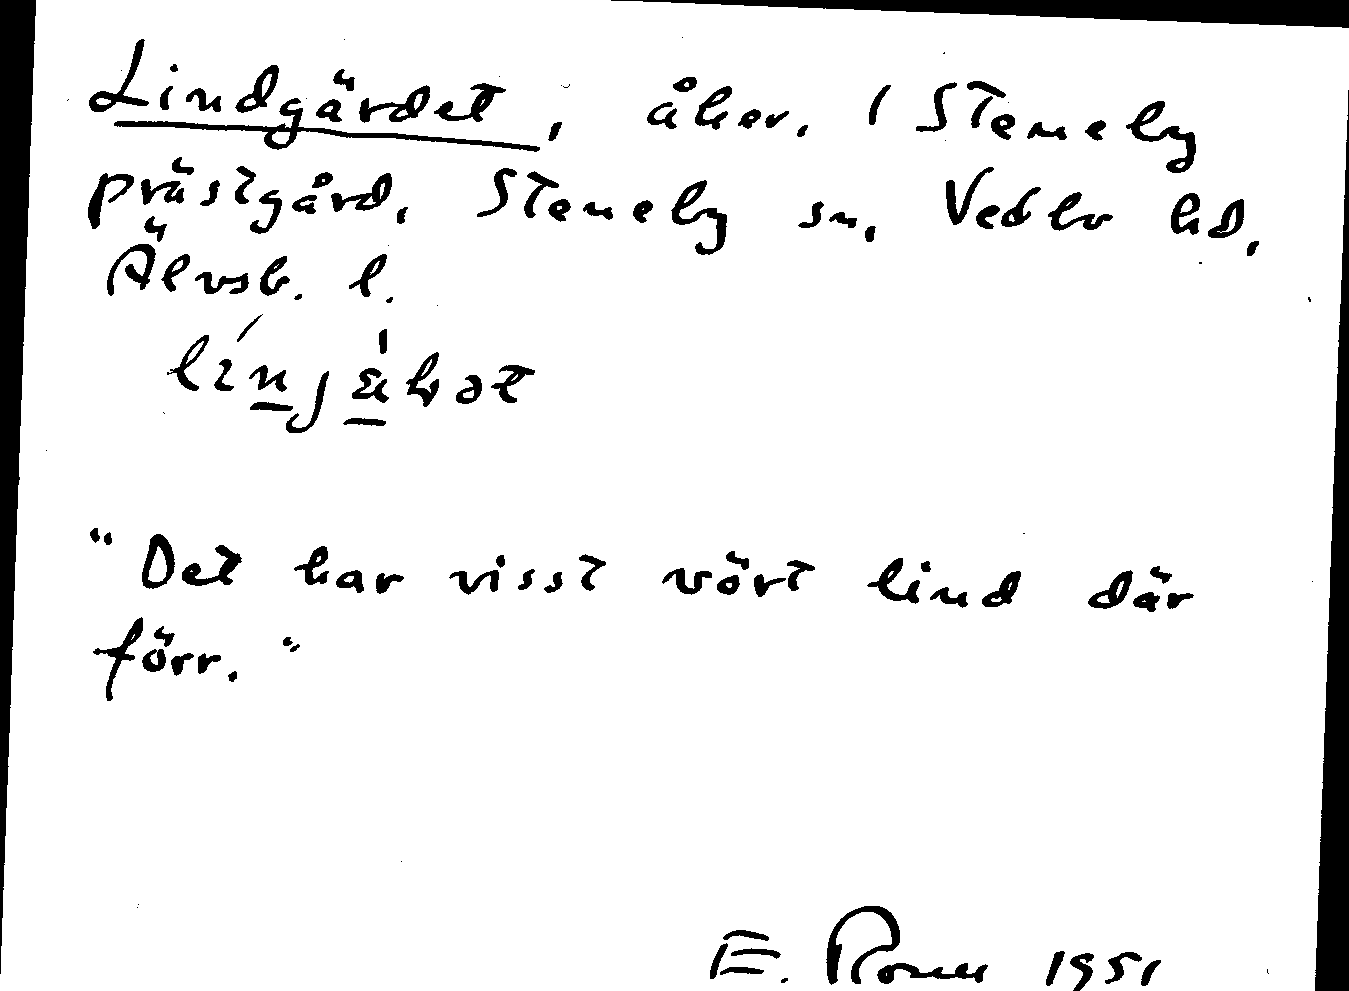 Lindgärdet, åker. I Steneby
prästgård, Steneby sn, Vedbo hd,
Älvsb. l.
"Det har visst vört lind där
förr."
E. 1951